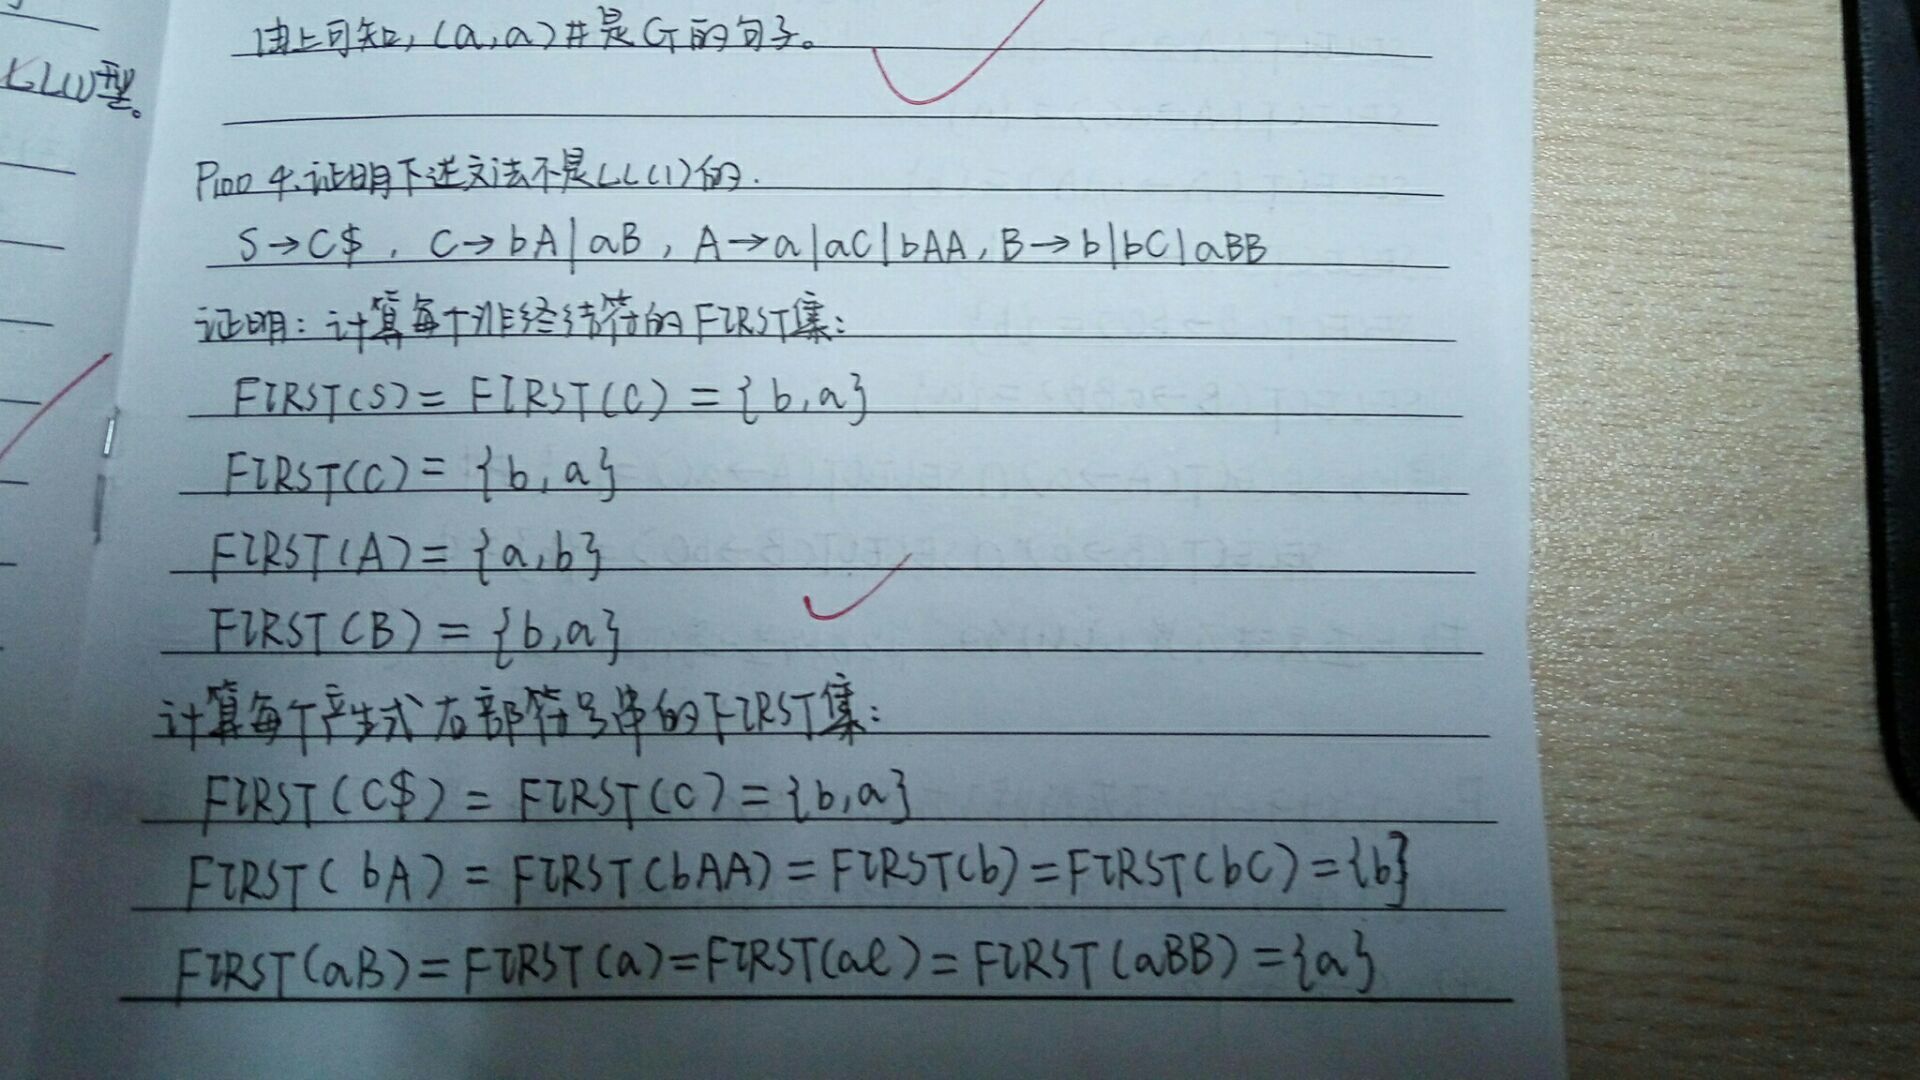 由上可知,(a,a)#是G的句子。
LL(1)型。
P100 4.证明下述文法不是LL(1)的.
S→C$, C→bA|aB, A→a|aC|bAA, B→b|bC|aBB
证明:计算每个非终结符的FIRST集:
FIRST(S)=FIRST(C)={b,a}
FIRST(C)={b,a}
FIRST(A)={a,b}
FIRST(B)={b,a}
计算每个产生式右部符号串的FIRST集:
FIRST(C$)=FIRST(C)={b,a}
FIRST(bA)=FIRST(bAA)=FIRST(b)=FIRST(bC)={b}
FIRST(aB)=FIRST(a)=FIRST(aC)=FIRST(aBB)={a}